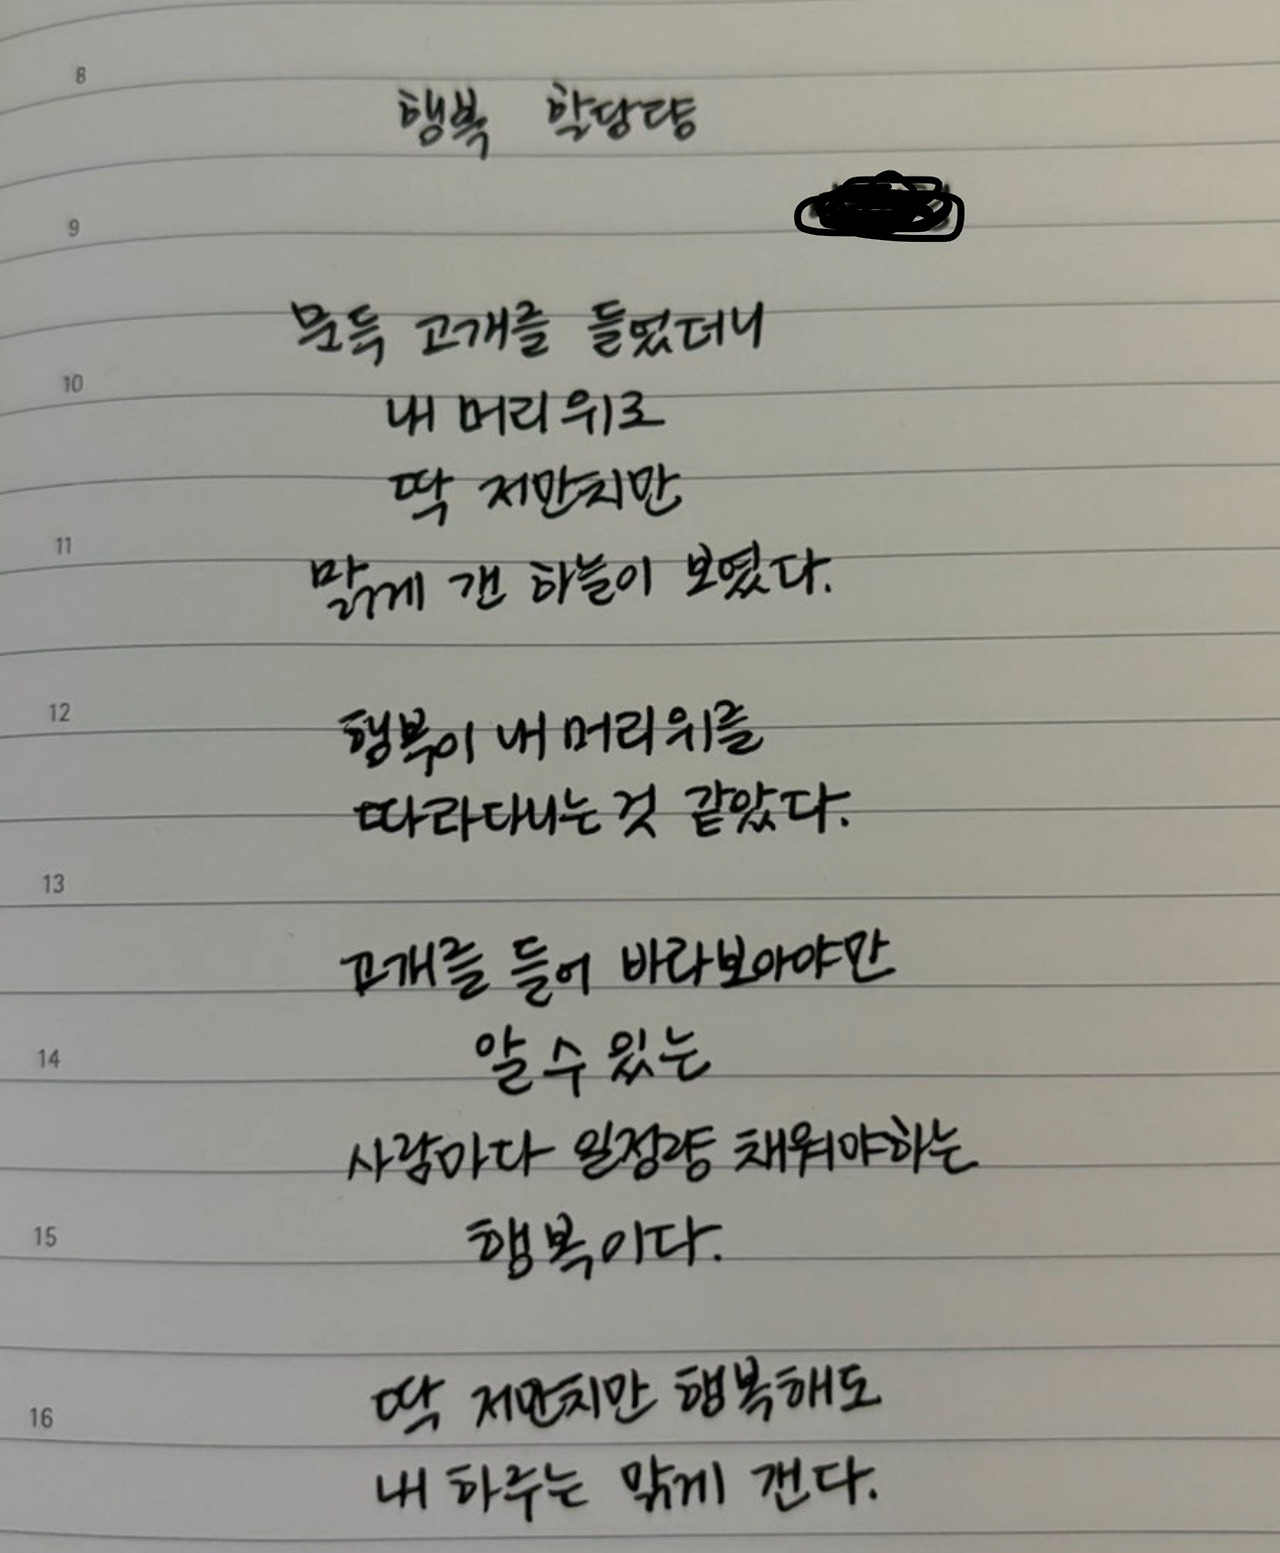 8
행복 할당량
9
문득 고개를 들었더니
10
내 머리 위로
딱 저만치만
11
맑게 갠 하늘이 보였다.
12
행복이 내 머리 위를
따라다니는 것 같았다.
13
고개를 들어 바라보아야만
14
알 수 있는
사람마다 일정량 채워야하는
15
행복이다.
16
딱 저만치만 행복해도
내 하루는 맑게 갠다.